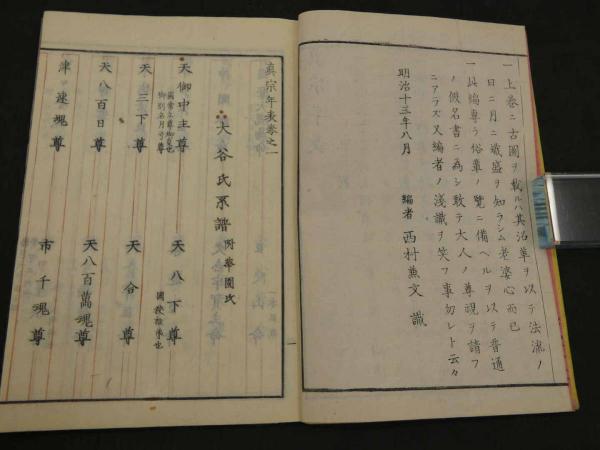 一 上巻ニ古図ヲ載ルハ其沿革ヲ以テ法流ノ
日ニ月ニ熾盛ヲ知ラシム老婆心而已
一 此編専ラ俗輩ノ覧ニ備ヘルヲ以テ普通
ノ仮名書ニ為シ敢テ大人ノ尊視ヲ請フ
ニアラズ又編者ノ浅識ヲ笑フ事勿レト云々
明治十三年八月
編者 西村兼文 識
真宗年表巻之一
大谷氏系譜 附華園氏
天御中主尊
天八下尊
天三下尊
天合尊
天八百日尊
天八百萬魂尊
津速魂尊
市千魂尊
一